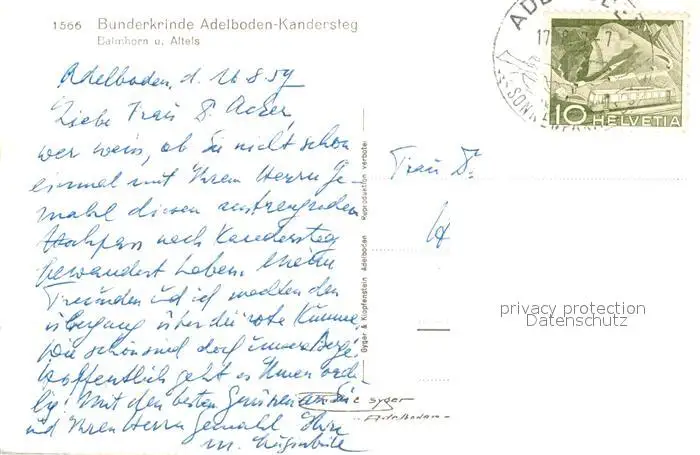 1566 Bunderkrinde Adelboden-Kandersteg
Balmhorn u. Altels
Adelboden, d. 16.8.59
Liebe Frau D. Acker,
wer weiss, ob Sie nicht schon
einmal mit Ihrem Herrn Ge-
mahl diesen anstrengenden
nach Kandersteg
gewandert haben. Meine
Freundin und ich machten den
Übergang über die rote Kumme.
Wie schön sind doch unsere Berge.
Hoffentlich geht es Ihnen
Mit den besten Grüssen an Sie
und Ihren Herrn Gemahl Ihre
M.
Reproduktion verboten
Gyger & Klopfenstein Adelboden
Frau Dr.
E Gyger
-Adelboden-
ADELBODEN
17
10 HELVETIA
privacy protection
Datenschutz